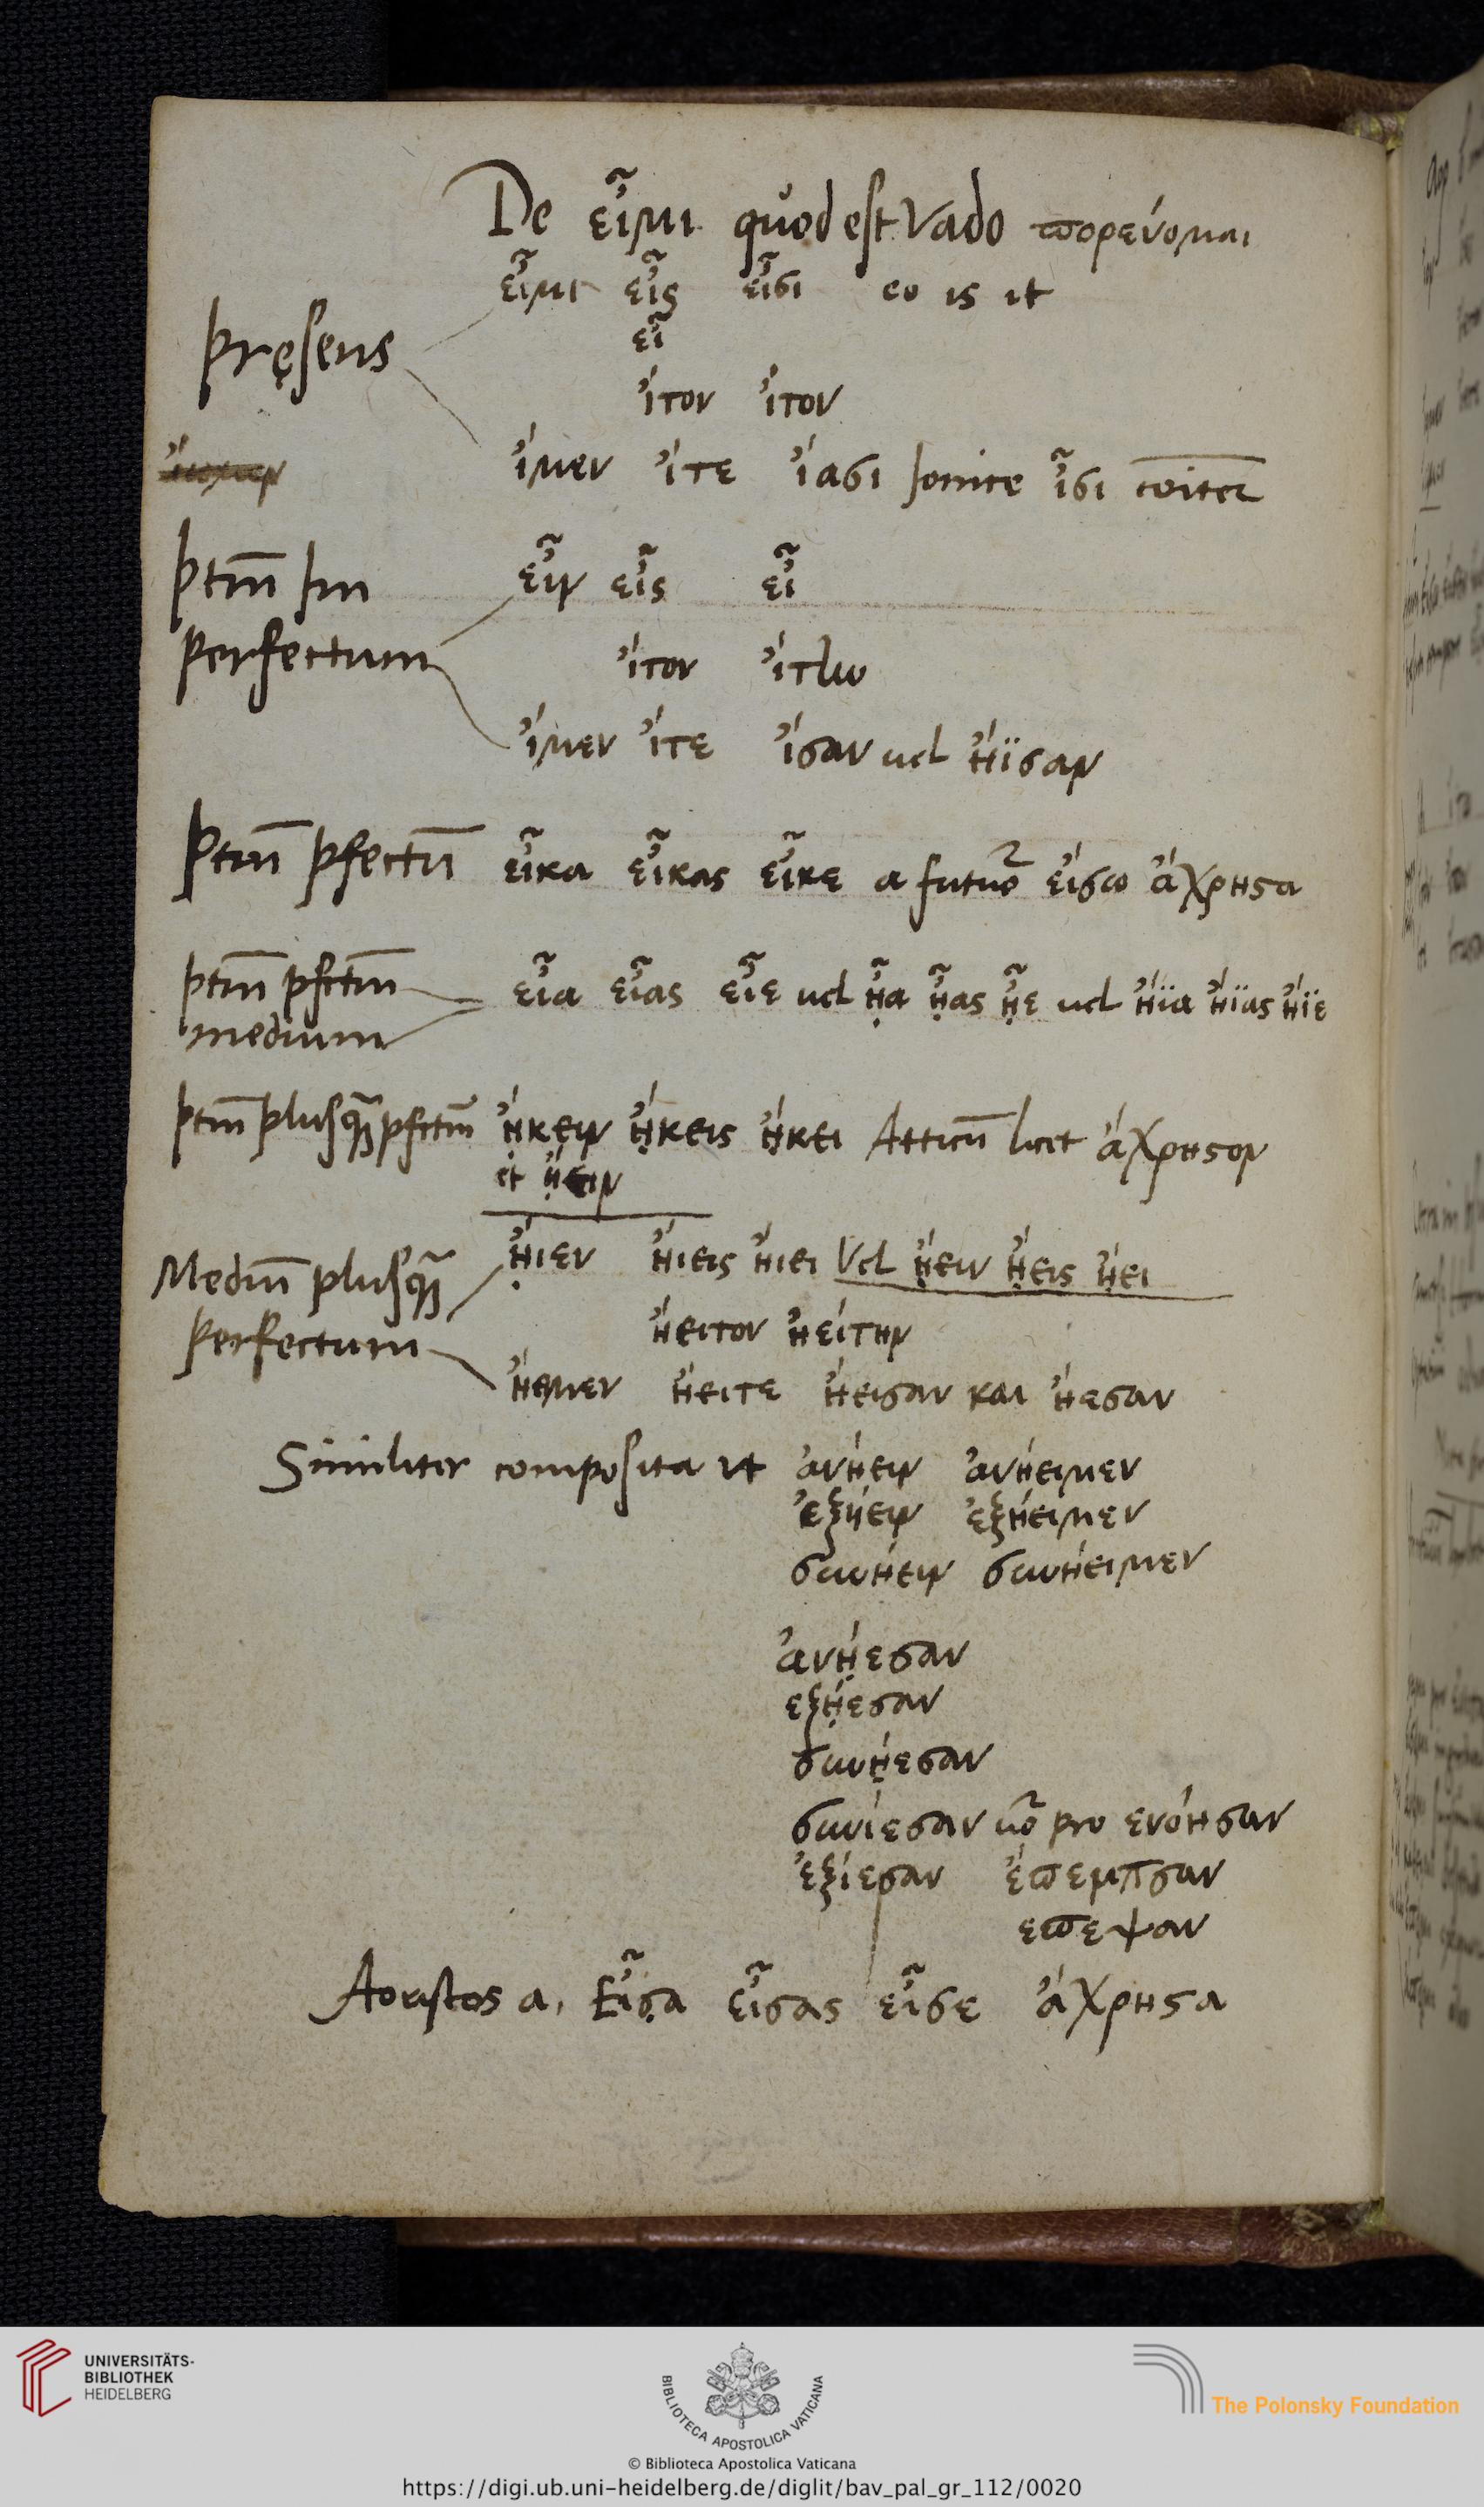 De εἶμι quod est Vado πορεύομαι
εἶμι εἶς εἶσι eo is it
εἶ
Pręsens
ἴτον ἴτον
ἴμεν ἴτε ἴασι Ionice ἶσι
Ptm̄ Im
perfectum
εἶν εἶς εἶ
ἴτον ἴτην
ἴμεν ἴτε ἴσαν uel ἤϊσαν
Ptm̄ pfectū εἶκα εἶκας εἶκε a futuro εἴσω ἄχρηστα
ptm̄ pfctm̄
medium
εἶα εἶας εἶε uel ᾖα ᾖας ᾖε uel ἤϊα ἤϊας ἤϊε
ptm̄ plusq̄ pfctm̄ ᾔκειν ᾔκεις ᾔκει Atticū licet ἄχρηστον
et ᾔειν
Mediū plusq̄
perfectum
ᾔιεν ἤιεις ἤιει Vel ᾔειν ᾔεις ᾔει
ἤειτον ἠείτην
ἤειμεν ἤειτε ἤεισαν και ἤεσαν
Similiter composita ut ἀνήειν ἀνήειμεν
ἐξήειν ἐξήειμεν
συνήειν συνήειμεν
ἀνῄεσαν
εξῄεσαν
συνῄεσαν
συνίεσαν uo pro ενόησαν
ἐξίεσαν ἔπεμπσαν
επεψαν
Aoristos a. Εἶσα εἶσας εἶσε ἄχρηστα
UNIVERSITÄTS-
BIBLIOTHEK
HEIDELBERG
BIBLIOTECA APOSTOLICA VATICANA
The Polonsky Foundation
© Biblioteca Apostolica Vaticana
https://digi.ub.uni-heidelberg.de/diglit/bav_pal_gr_112/0020